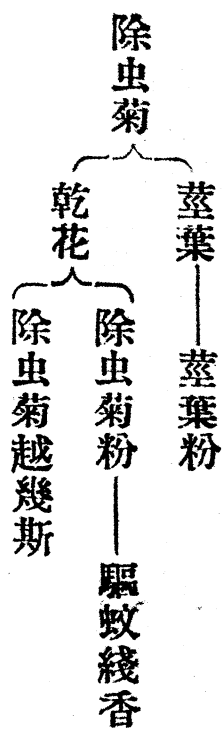 除虫菊
莖葉
莖葉粉
乾花
除虫菊粉
驅蚊綫香
除虫菊越幾斯